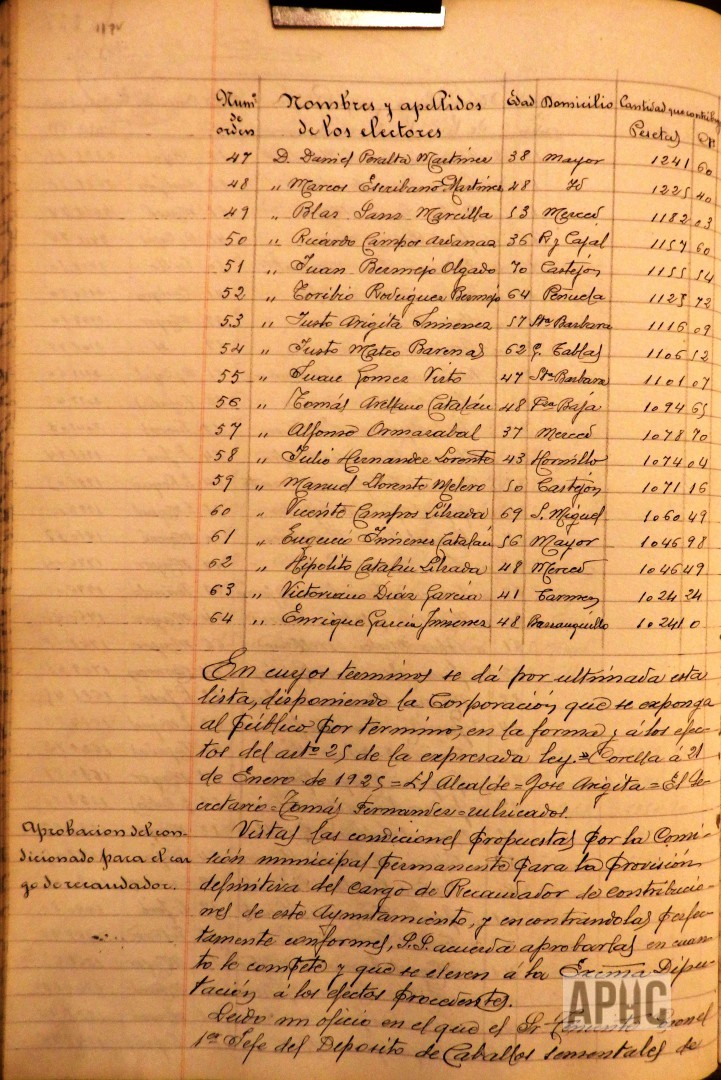 Num.º de orden Nombres y apellidos de los electores Edad Domicilio Cantidad que contribu
Pesetas
47 D. Daniel Peralta Martinez 38 Mayor 1241 60
48 " Marcos Escribano Martinez 48 Id 1225 40
49 " Blas Sanz Marcilla 53 Merced 1182 03
50 " Ricardo Campos Ardanaz 36 R y Cajal 1157 60
51 " Juan Bermejo Olgado 70 Castejón 1155 54
52 " Toribio Rodriguez Bermejo 64 Peñuela 1125 72
53 " Justo Arigita Jimenez 57 Sta Barbara 1116 09
54 " Justo Mateo Barenas 62 G. Tablas 1106 52
55 " Juan Gomez Virto 47 Sta Barbara 1101 07
56 " Tomás Arellano Catalán 48 Baja 1094 65
57 " Alfonso Ormazabal 37 Merced 1078 70
58 " Julio Hernandez Lorente 43 Hornillo 1074 04
59 " Manuel Llorente Melero 50 Castejón 1071 16
60 " Vicente Campos Lizada 69 S. Miguel 1060 49
61 " Eugenio Jimenez Catalán 56 Mayor 1046 98
62 " Hipolito Catalán Lizada 48 Merced 1046 49
63 " Victoriano Diáz Garcia 41 Carmen 1024 24
64 " Enrique Garcia Jimenez 48 Barranquillo 1024 10
En cuyos terminos se dá por ultimada esta
lista, disponiendo la Corporación que se exponga
al público por termino, en la forma y á los efec-
tos del artº 25 de la expresada ley.= Corella á 21
de Enero de 1925 = El Alcalde = Jose Arigita = El Se-
cretario = Tomás Fernandez = rubricados.
Aprobacion del con-
dicionado para el car
go de recaudador.
Vistas las condiciones propuestas por la Comi-
sión municipal permanente para la provisión
definitiva del cargo de Recaudador de contribucio-
nes de este Ayuntamiento, y encontrandolas perfec-
tamente conformes, S.S. acuerda aprobarlas en cuan-
to le compete y que se eleven á la Exema Dipu-
tación á los efectos procedentes.
Leido un oficio en el que el Sr. Teniente Coronel
1er Jefe del Deposito de Caballos sementales de
APHC